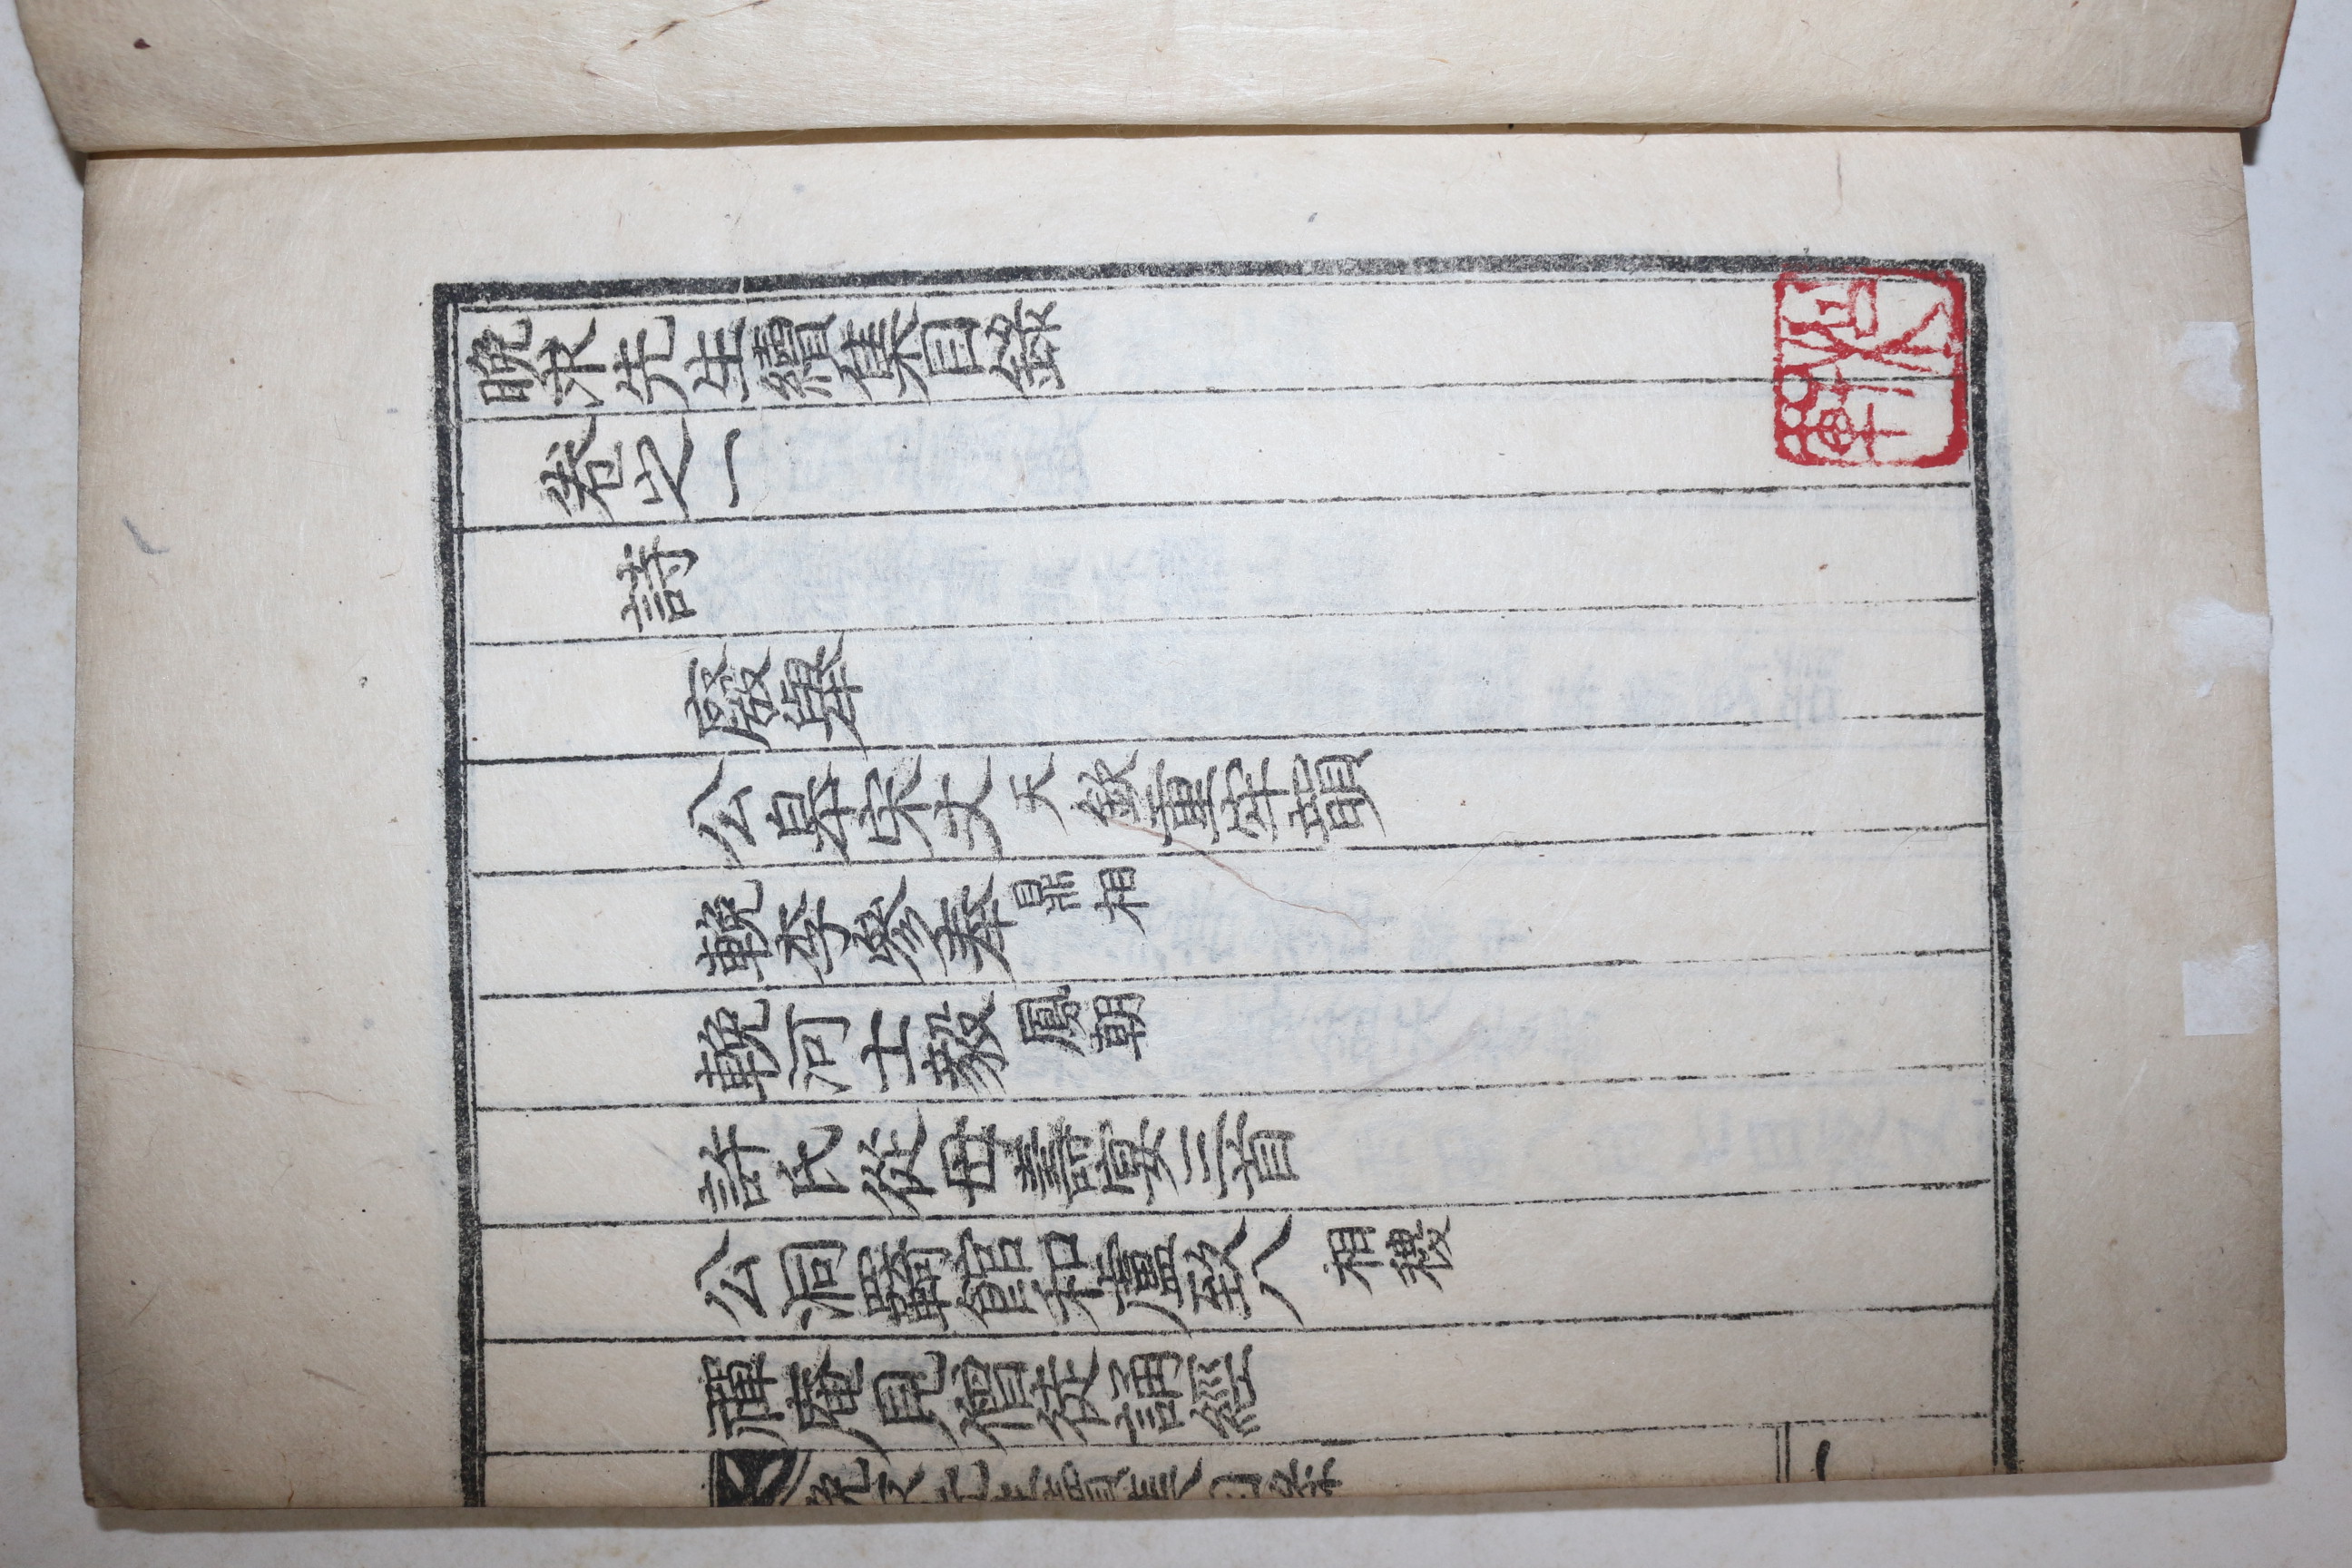 晩求先生續集目錄
卷之一
詩
廢舉
公皐宋丈天欽重牢韻
輓李參奉鼎相
輓河士毅鳳朝
許氏從母壽宴三首
公洞羇館和盧致八相稷
禪庵見僧徒誦經
晩求先生續集目錄
一